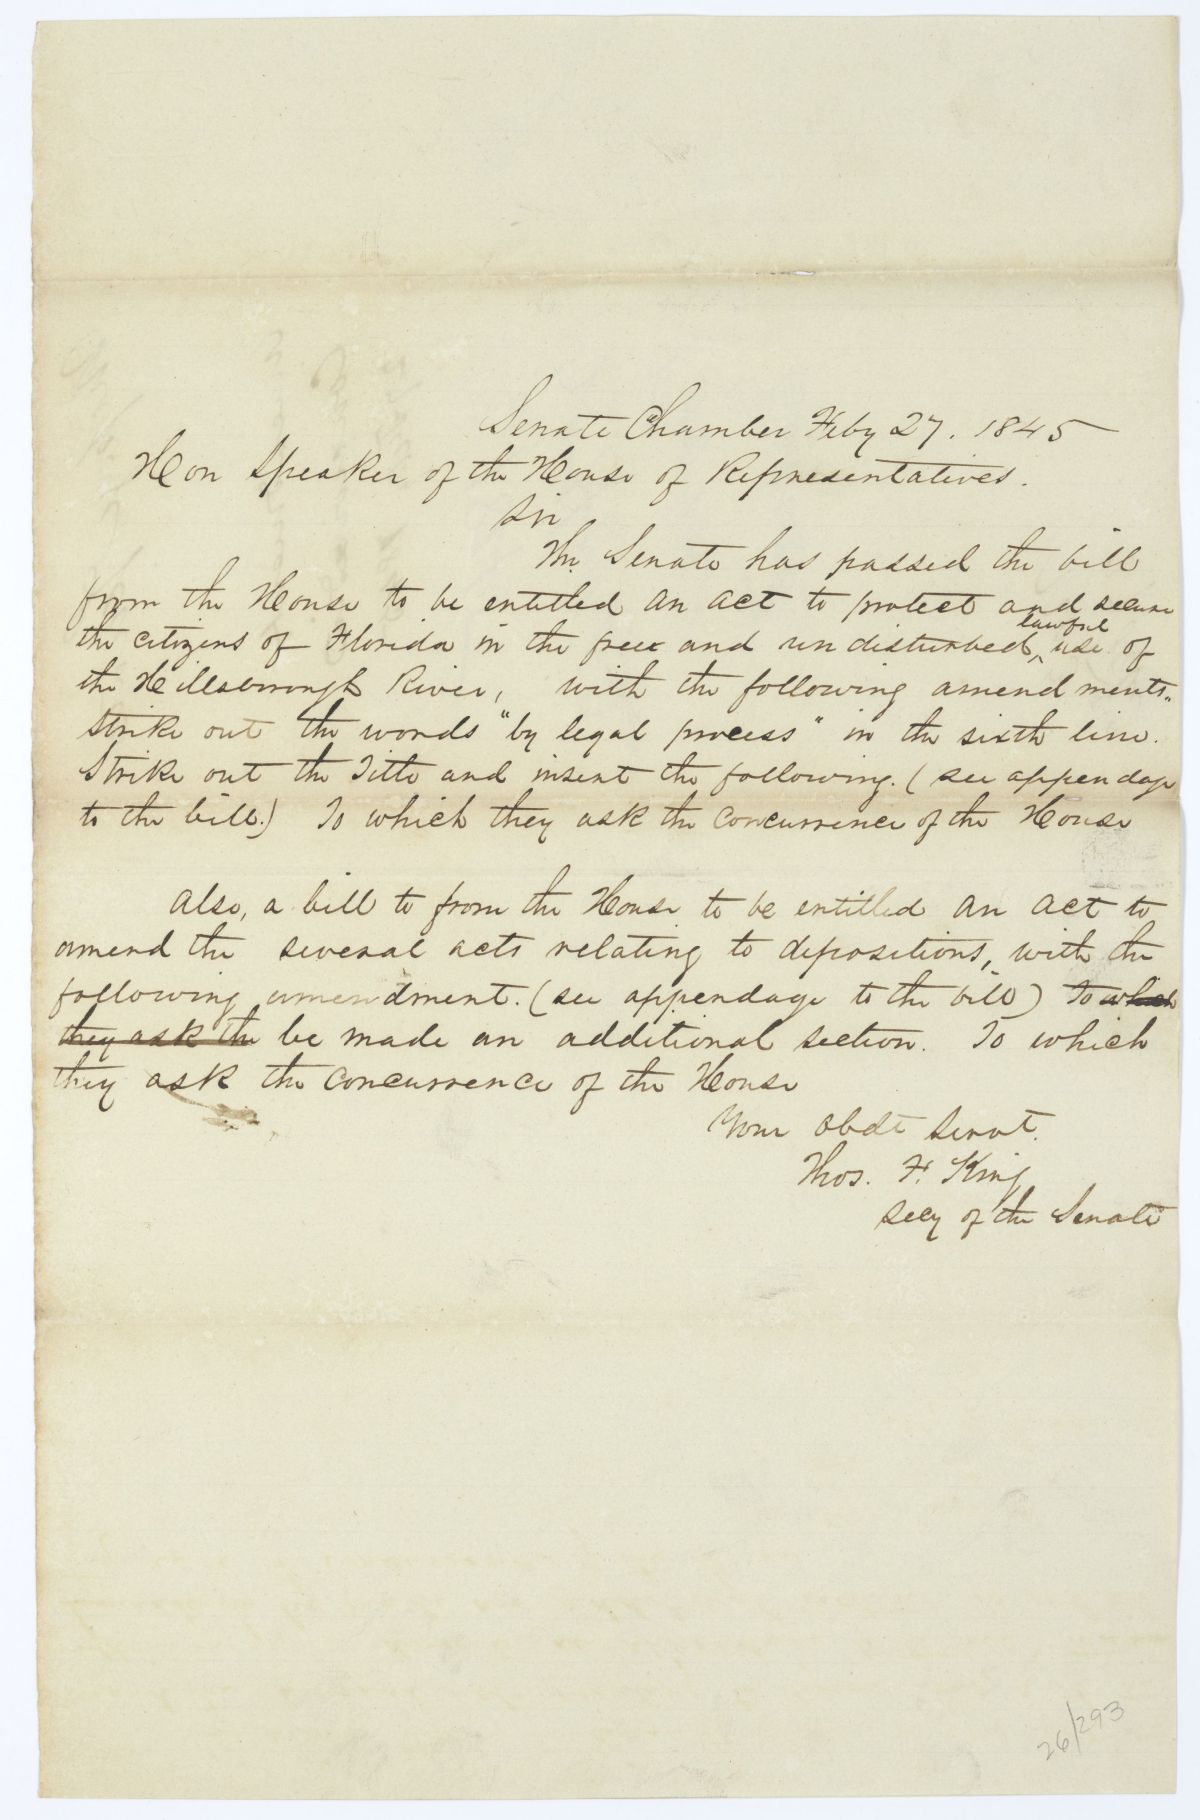 Senate Chamber Feby 27. 1845
Hon Speaker of the House of Representatives.
Sir
The Senate has passed the bill
from the House to be entitled an act to protect and secure
the citizens of Florida in the free and undisturbed ^ lawful use of
the Hillsborough River, with the following amendments.
Strike out the words "by legal process" in the sixth line.
Strike out the Title and insert the following. (see appendage
to the bill.) To which they ask the concurrence of the House
Also, a bill to from the House to be entitled an act to
amend the several acts relating to depositions, with the
following amendment. (see appendage to the bill) To which
they ask the be made an additional section. To which
they ask the concurrence of the House
Your obdt servt.
Thos. F. King
Secy of the Senate
26/293